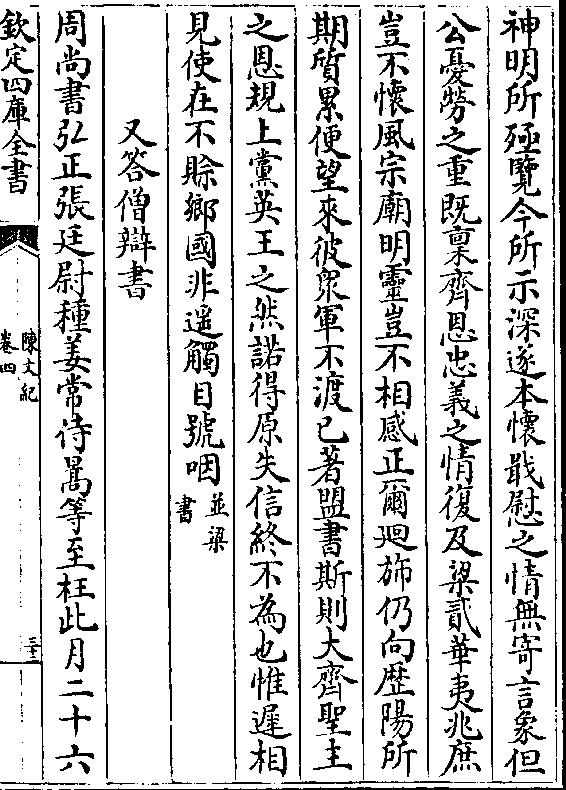 神明所殛覽今所示深遂本懷戢慰之情無寄言象但
公憂勞之重既稟齊恩忠義之情復及梁貳華夷兆庶
豈不懷風宗廟明靈豈不相感正爾廻斾仍向歴陽所
期質累便望來彼衆軍不渡已著盟書斯則大齊聖主
之恩規上黨英王之然諾得原失信終不為也惟遲相
見使在不賖鄉國非遥觸目號咽並梁書
又答僧辯書
周尚書弘正張廷尉種姜常侍暠等至枉此月二十六
欽定四庫全書
陳文紀
卷四
三十二